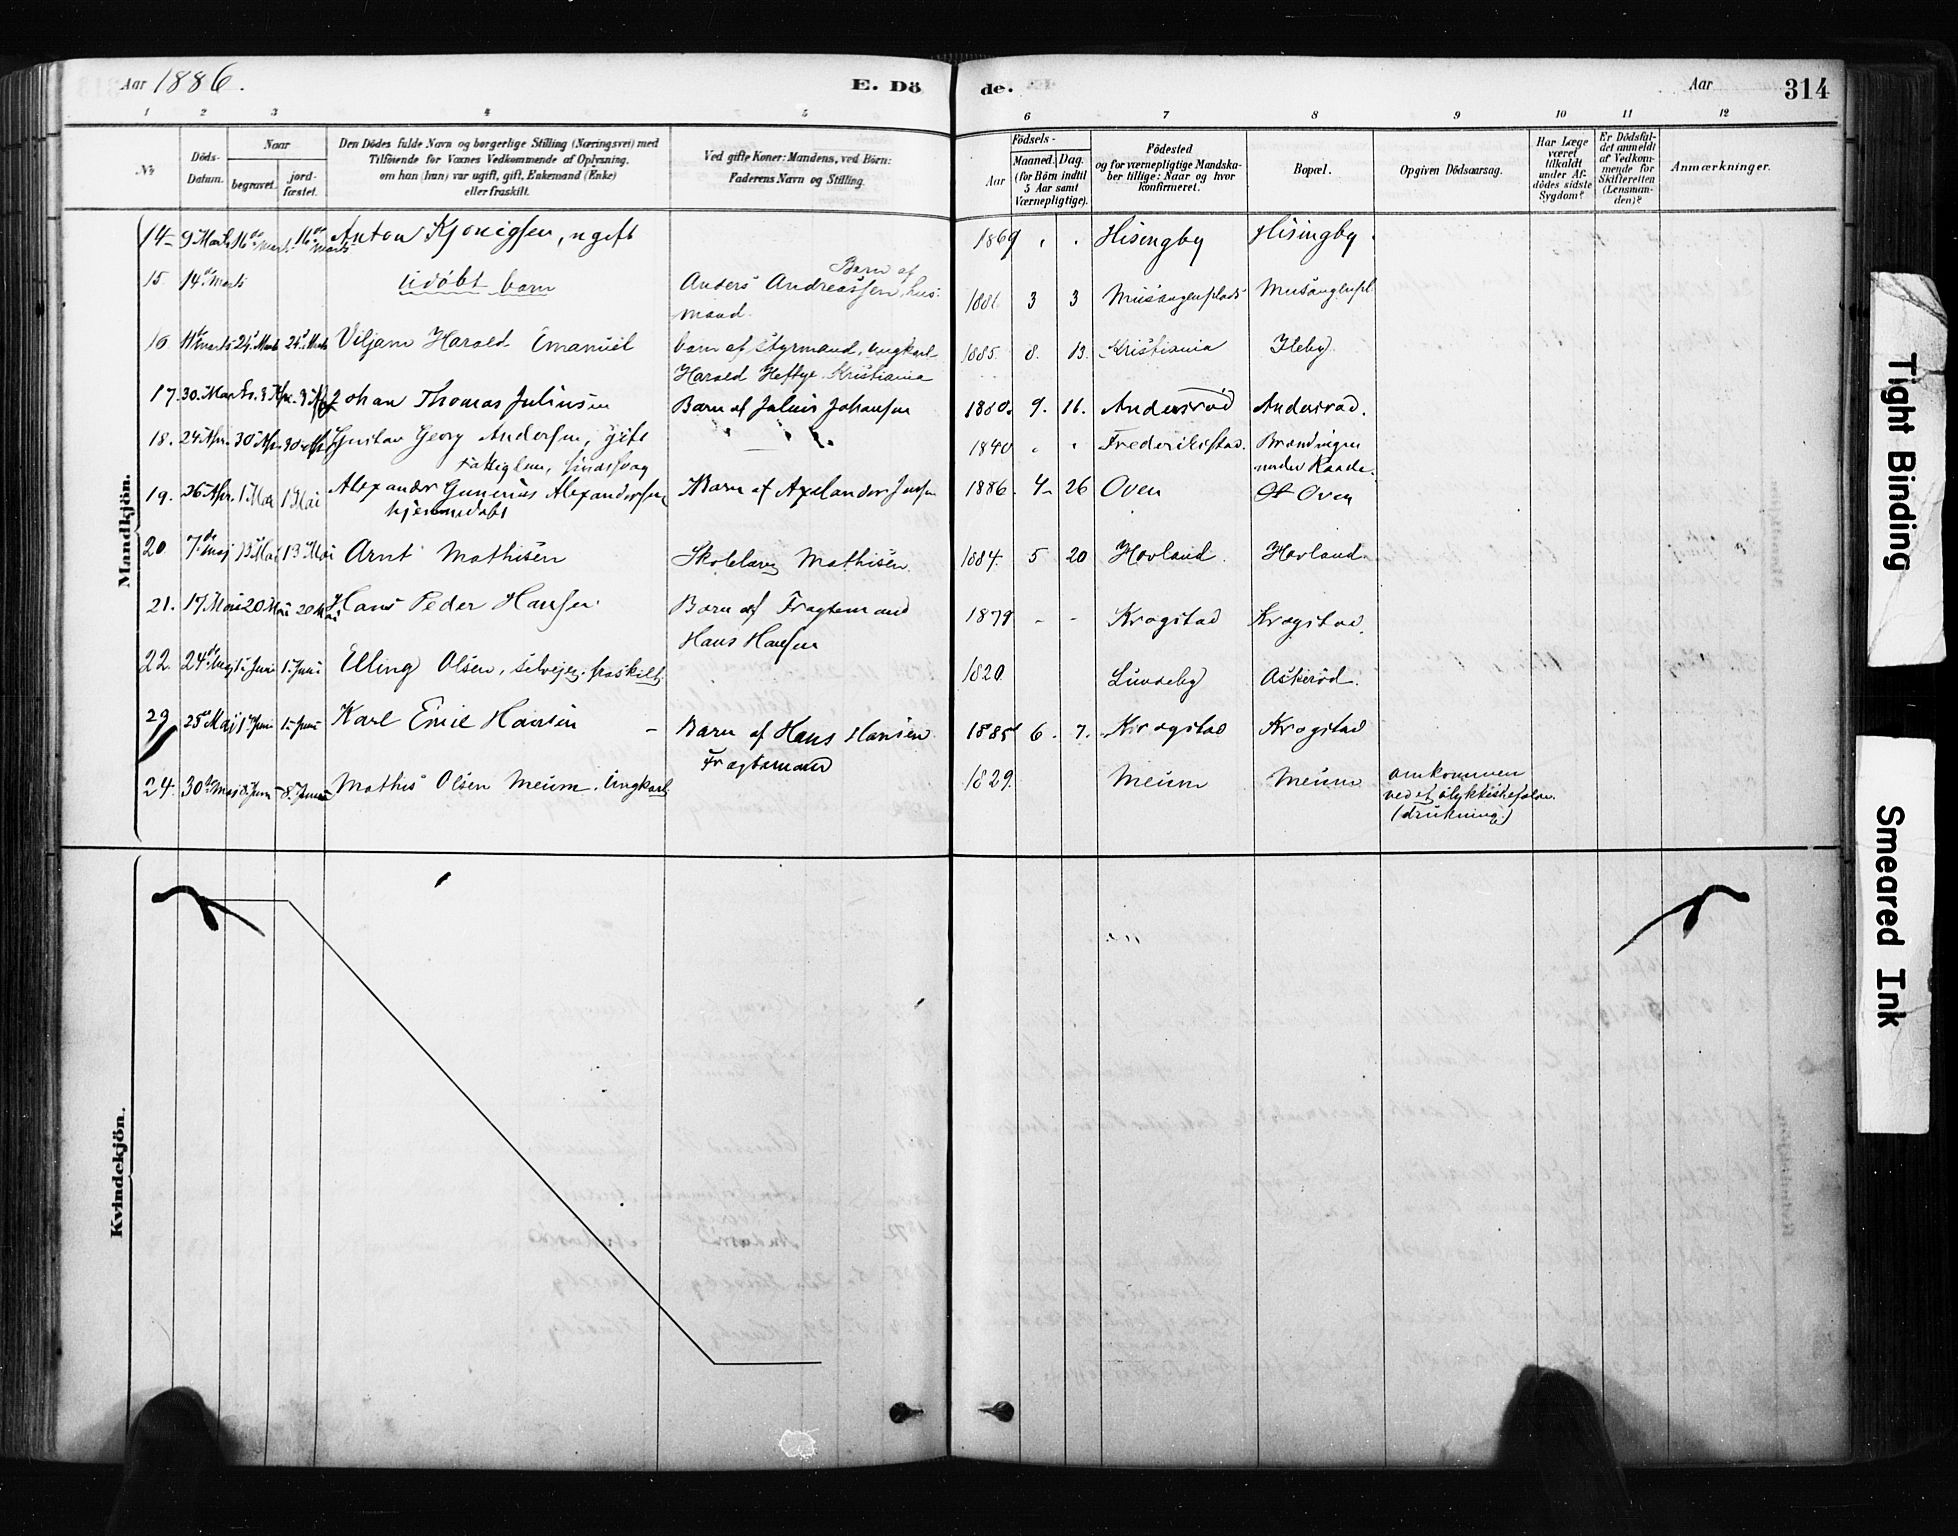 Aar 1886.
E. Dö
de.
Aar
314
1 2 3 4 5 6 7 8 9 10 11 12
No
Döds-
Datum.
Naar
begravet.
jord-
fæstet.
Den Dödes fulde Navn og borgerlige Stilling (Næringsvei) med
Tilföiende for Vœnes Vedkommende af Oplysning,
om han (hun) var ugift, gift, Enkemand (Enke)
eller fraskilt.
Ved gifte Koner: Mandens, ved Börn:
Faderens Navn og Stilling.
Födsels-
Aar
Maaned. Dag.
(for Börn indtil
5 Aar samt
Værnepligtige).
Födested
og for værnepligtige Mandska-
ber tillige: Naar og hvor
konfirmeret.
Bopæl.
Opgiven Dödsaarsag.
Har Læge
været
tilkaldt
under Af-
dödes sidste
Sygdom?
Er Dödsfal-
det anmeldt
af Vedkom-
mende for
Skifteretten
(Lensman-
den)?
Anmærkninger.
Mandkjön.
14 9 Marts 16de Marts 16de Marts Anton , ugift 1869 Hisingby Hisingby.
15. 14de Marts Udöbt barn Barn af
Anders Andreassen, hus-
mand. 1886 3 3
16 11te Marts 24. Marts 24. Marts Viljam Harald Emanuel barn af Styrmand, ungkarl
Harald Heftye Kristiania 1885. 8. 13. Kristiania Ileby
17. 30. Marts. 9 Apr. 9 Apr. Johan Thomas Juliussen Barn af Julius Johansen 1880. 9. 16. Andersrød Andersrød.
18. 24 Apr. 30 Apr. 30 Apr. Gustav Georg Andersen, gift 1840 Frederikstad.
Fattiglem, sindssvag under Raade.
19. 26 Apr. 1 Mai 1 Mai Alexander Gunerius Alexandersen
hjemmedöbt Barn af 1886. 4 26 Oven Oven
20 7de Maj 13 Mai 13 Mai Arnt Mathisen Skolelærer Mathisen. 1884. 5 20 Hovland. Hovland.
21. 17 Mai 20 Mai 20 Mai Hans Peder Hansen Barn af Fragtemand
Hans Hansen 1879 - - Krogstad Krogstad.
22 24de Maj 1. Juni 1. Juni Elling Olsen, selvejer. fraskilt 1820. Lundeby Askeröd.
23 25de Maj 1. Juni 1. Juni Karl Emil Hansen - Barn af Hans Hansen
Fragtemand 1885 6. 7. Krogstad Krogstad
24. 30te Maj 8. Juni 8. Juni Mathis Olsen Meum. Ungkarl 1829. Meum Meum omkommen
ved et ulykkestilfælde.
(drukning.)
Kvindekjön.
Tight Binding
Smeared Ink